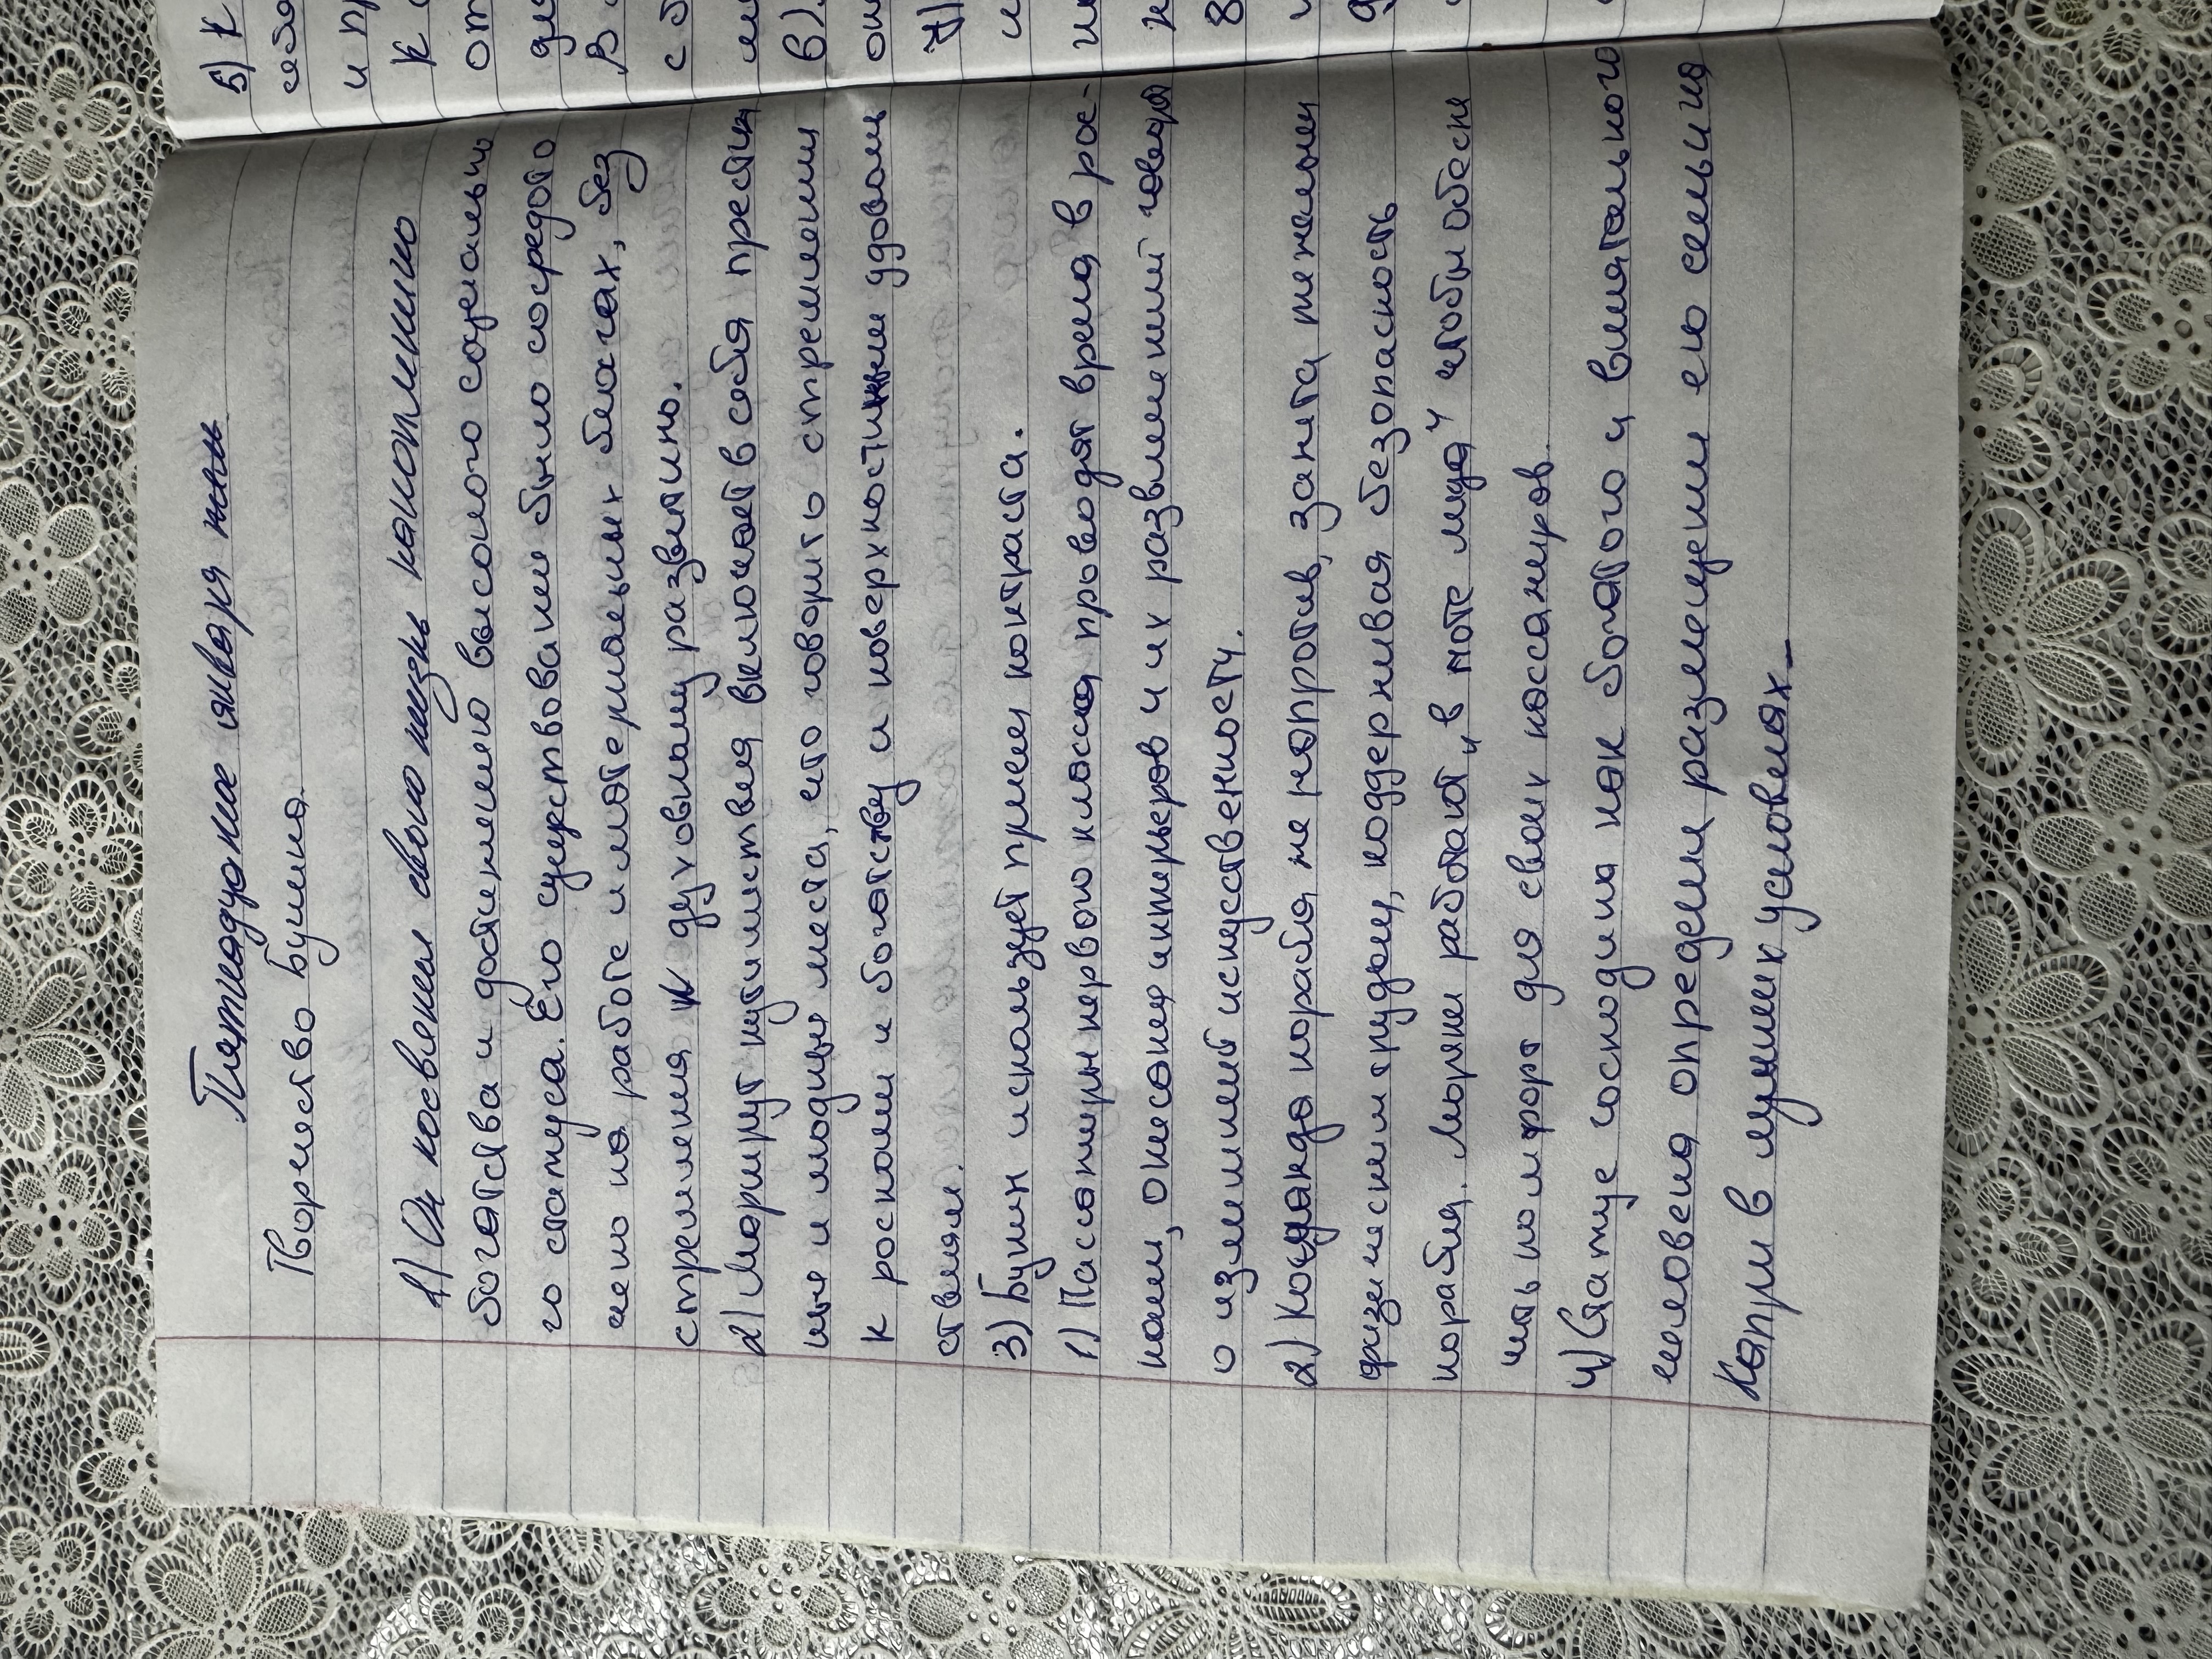 Пятнадцатое января
Творчество Бунина.
1) Он посвятил свою жизнь накоплению
богатства и достижению высокого социально
го статуса. Его существование было сосредото
чено на работе и материальных благах, без
стремления к духовному развитию.
2) Маршрут путешествия включает в себя прести
ные и модные места, что говорить о стремлении
к роскоши и богатству и поверхностным удоволь
ствиям.
3) Бунин использует прием контраста.
1) Пассажиры первого класса проводят время в рос-
коши, описание интерьеров и их развлечений говорят
о излишней искусственности.
2) Команда корабля же напротив, занята тяжелым
физическим трудом, поддерживая безопасность
корабля. Моряки работают „в поте лица" чтобы обеспе
чить комфорт для своих пассажиров.
4) Статус господина как богатого и влиятельного
человека определил размещении его семьи на
Капри в лучших условиях.
5) К
себя
и пр
к
от
дл
В
с б
6).
7)
8
9